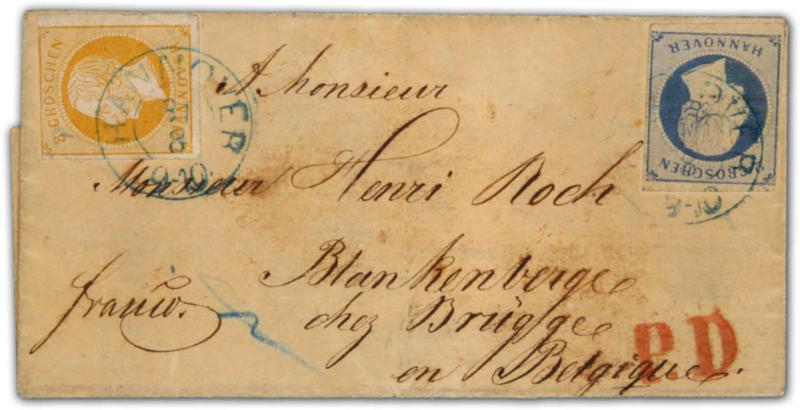 3 GROSCHEN
HANNOVER
9-10
HANNOVER
GROSCHEN
A Monsieur
Monsieur Henri Roch
Blankenberge
franco.
chez Brügge
en Belgique.
P.D